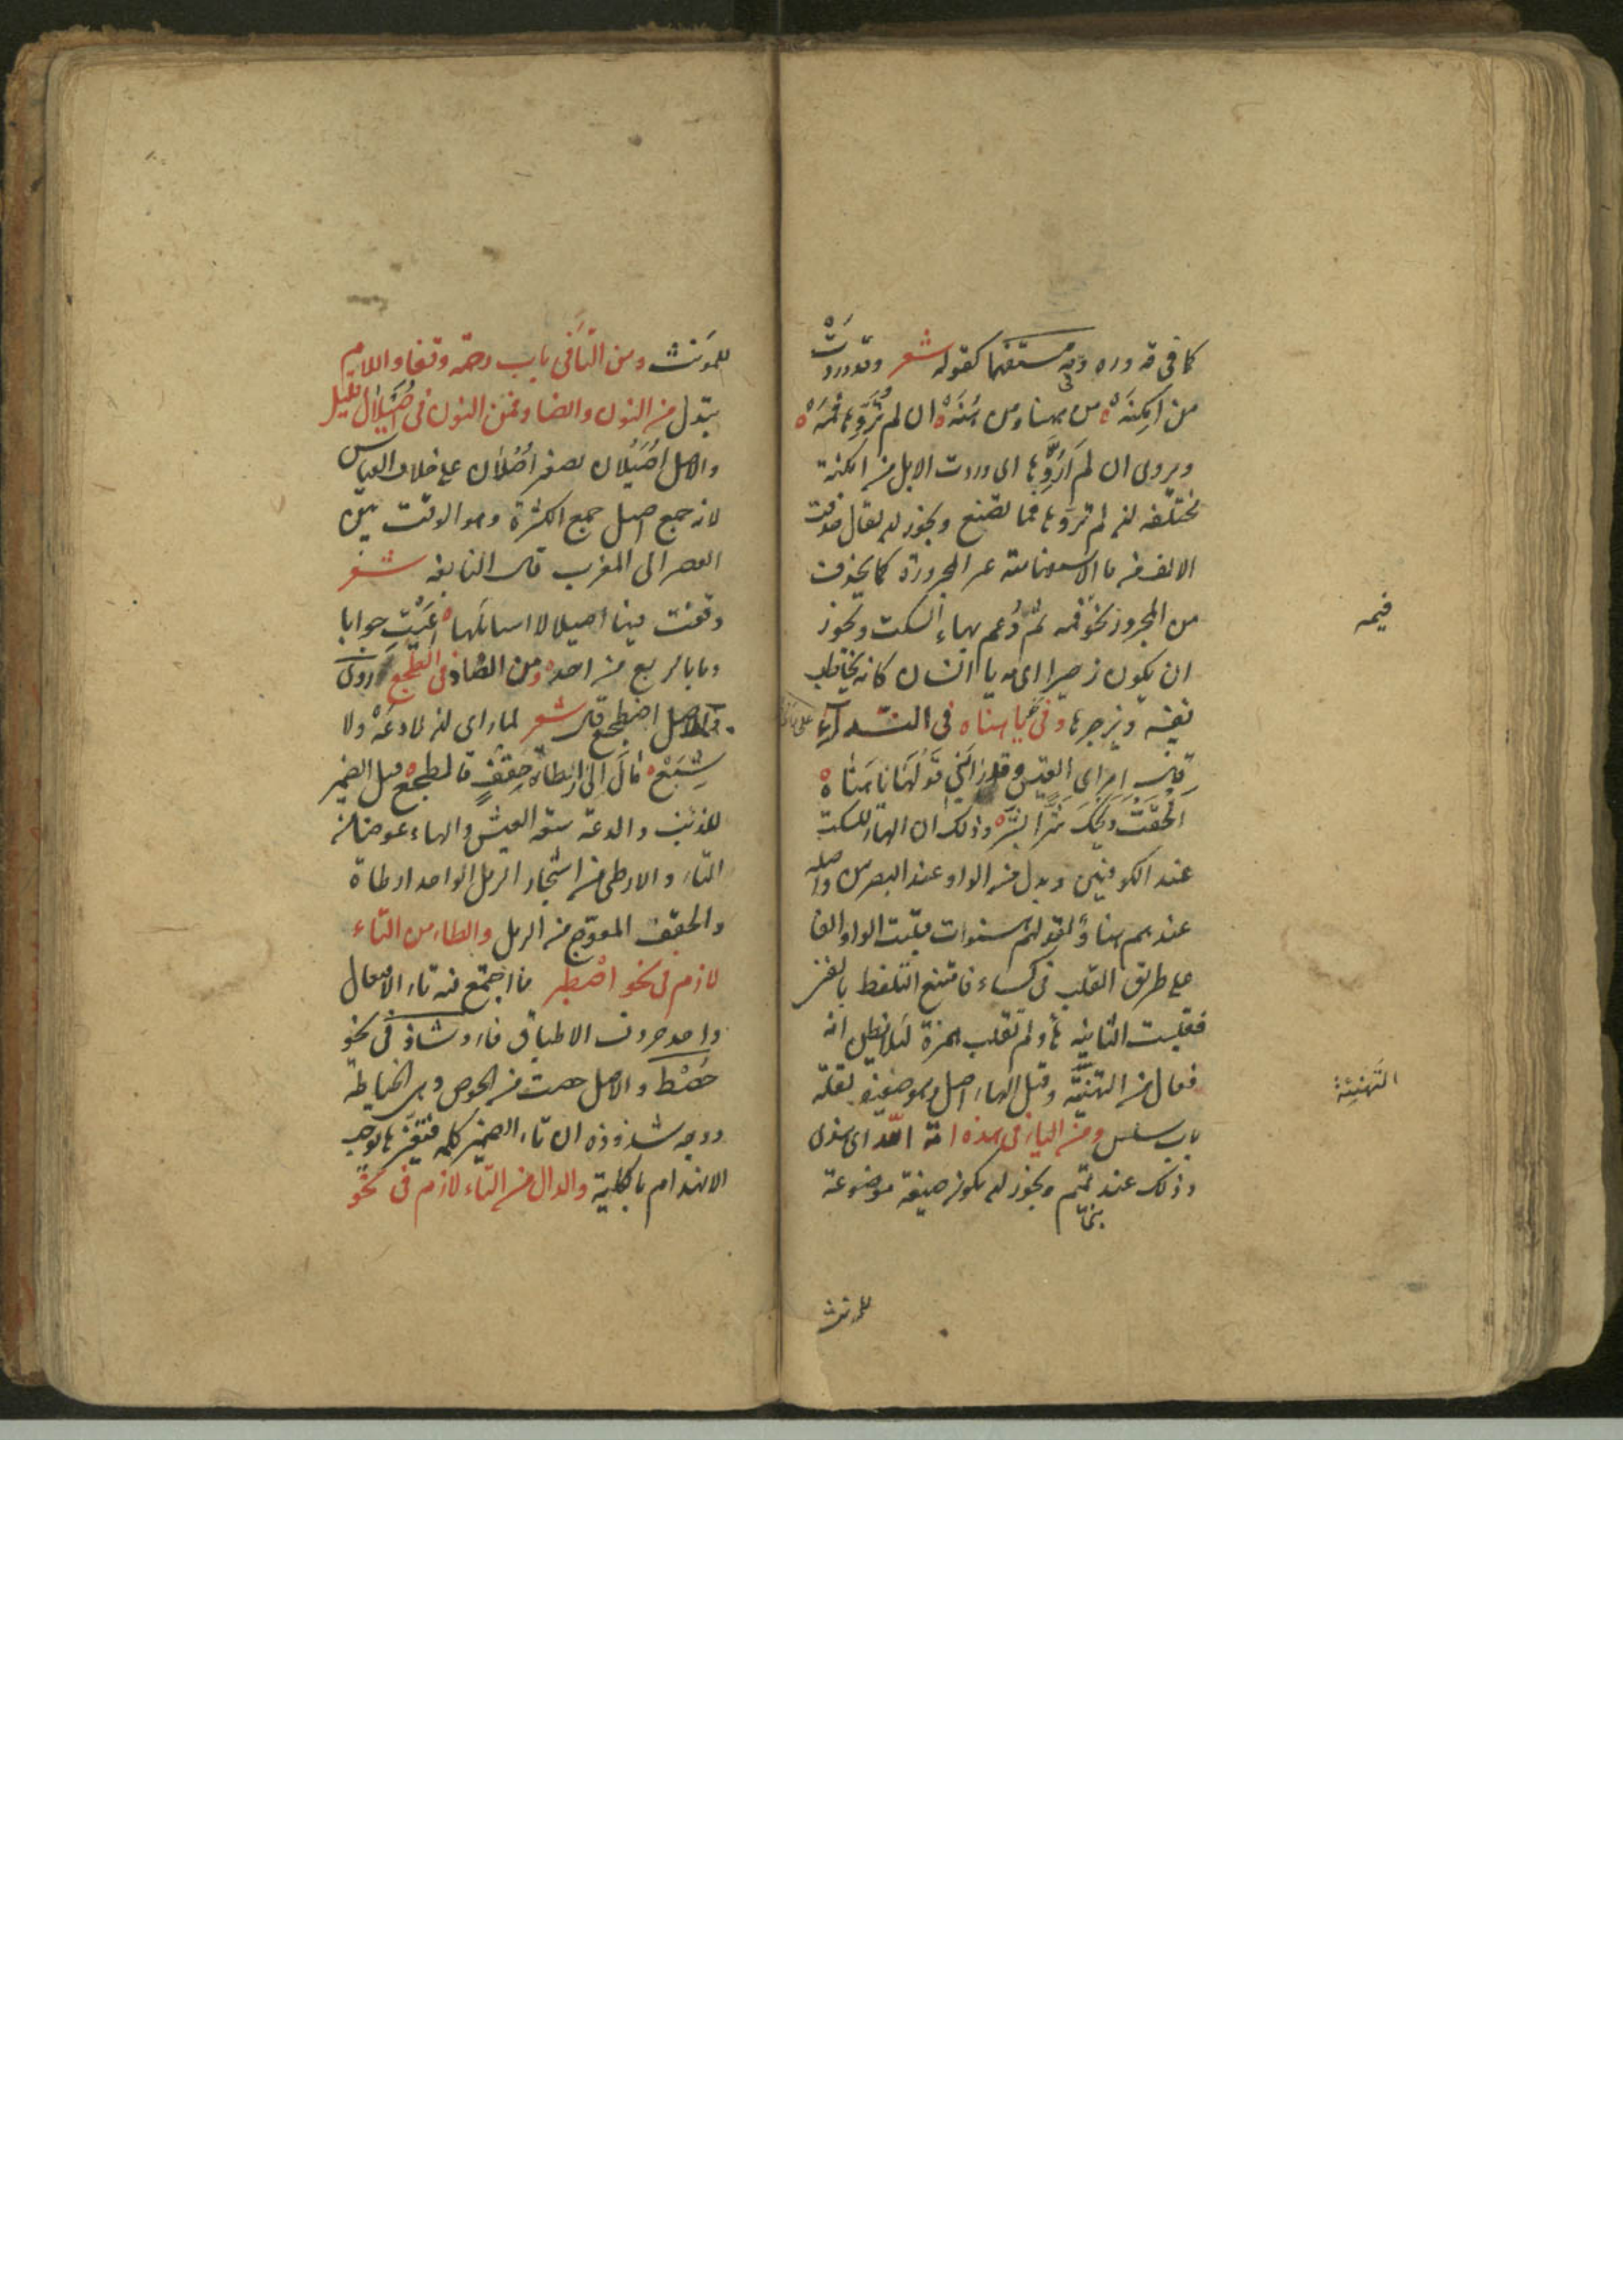 كما فى قد وره وفى مه مستفهما كقوله شعر وقد وردَتْ
من اَمْكِنَهْ ه من ههنا ومن هُنَهْ ه ان لم تُرَوِّها فَمَهْ ه
ويروى ان لم اُرَوِّها اى وردت الابل من امكنة
مختلفه ان لم تروها فما تصنع ويجوز ان يقال حذفت
الالف من ما الاستفهامية غير المجرورة كما يحذف
من المجرور نحو فمه ثم دُعم بهاء السكت ويجوز
ان يكون زجرا اى مه يا انسان كانه يخاطب
نفسه ويزجرها وفى يا هناه فى النداء
قال امرئ القيس وقد رابنى قولها يا هناه ه
الحقت ويحك شرا بشر ه وذلك ان الهاء للسكت
عند الكوفيين وبدل من الواو عند البصريين واصله
عندهم هناو لقولهم هنوات قلبت الواو الفا
على طريق القلب فى كساء فامتنع التلفظ بالفين
فقلبت الثانيه هاء ولم تقلب همزة لئلا يظن انه
فعال من التهنية وقيل الهاء اصل وهو ضعيف لقلة
باب سلس ومن الياء فى هذه امة الله اى هذى
وذلك عند تميم ويجوز ان يكون صيغة موضوعة
فيمه
التهنِئة
للمؤنث
للمؤنث ومن التاء فى باب رحمة وقفا واللام
تبدل من النون والضاد فمن النون فى اُصَيلال قليل
والاصل اُصَيلان تصغر اُصلان على خلاف القياس
لانه جمع اصيل جمع الكثرة وهو الوقت بين
العصر الى المغرب قال النابغه شعر
وقفت فيها اصيلالا اسائلها ه اعيت جوابا
وما بالربع من احد ه ومن الضاد فى الطجع ردى
والاصل اضطجع قال شعر لما راى ان لا دعه ولا
شِبَعْ ه مالَ الى ارطاة حقف فالطجع ه قيل الضمير
للذئب والدعة سعة العيش والهاء عوض من
التاء والارطى من اشجار الرمل الواحد ارطاة
والحقف المعوّج من الرمل والطاء من التاء
لازم فى نحو اصطبر ما اجتمع فيه تاء الافتعال
واحد حروف الاطباق فاء وشاذ فى نحو
حُصْط والاصل حصت من الحوص وهى الخياطة
ووجه شذوذه ان تاء الضمير كلمة فتغيرها يوجب
الانهدام بالكلية والدال من التاء لازم فى نحو